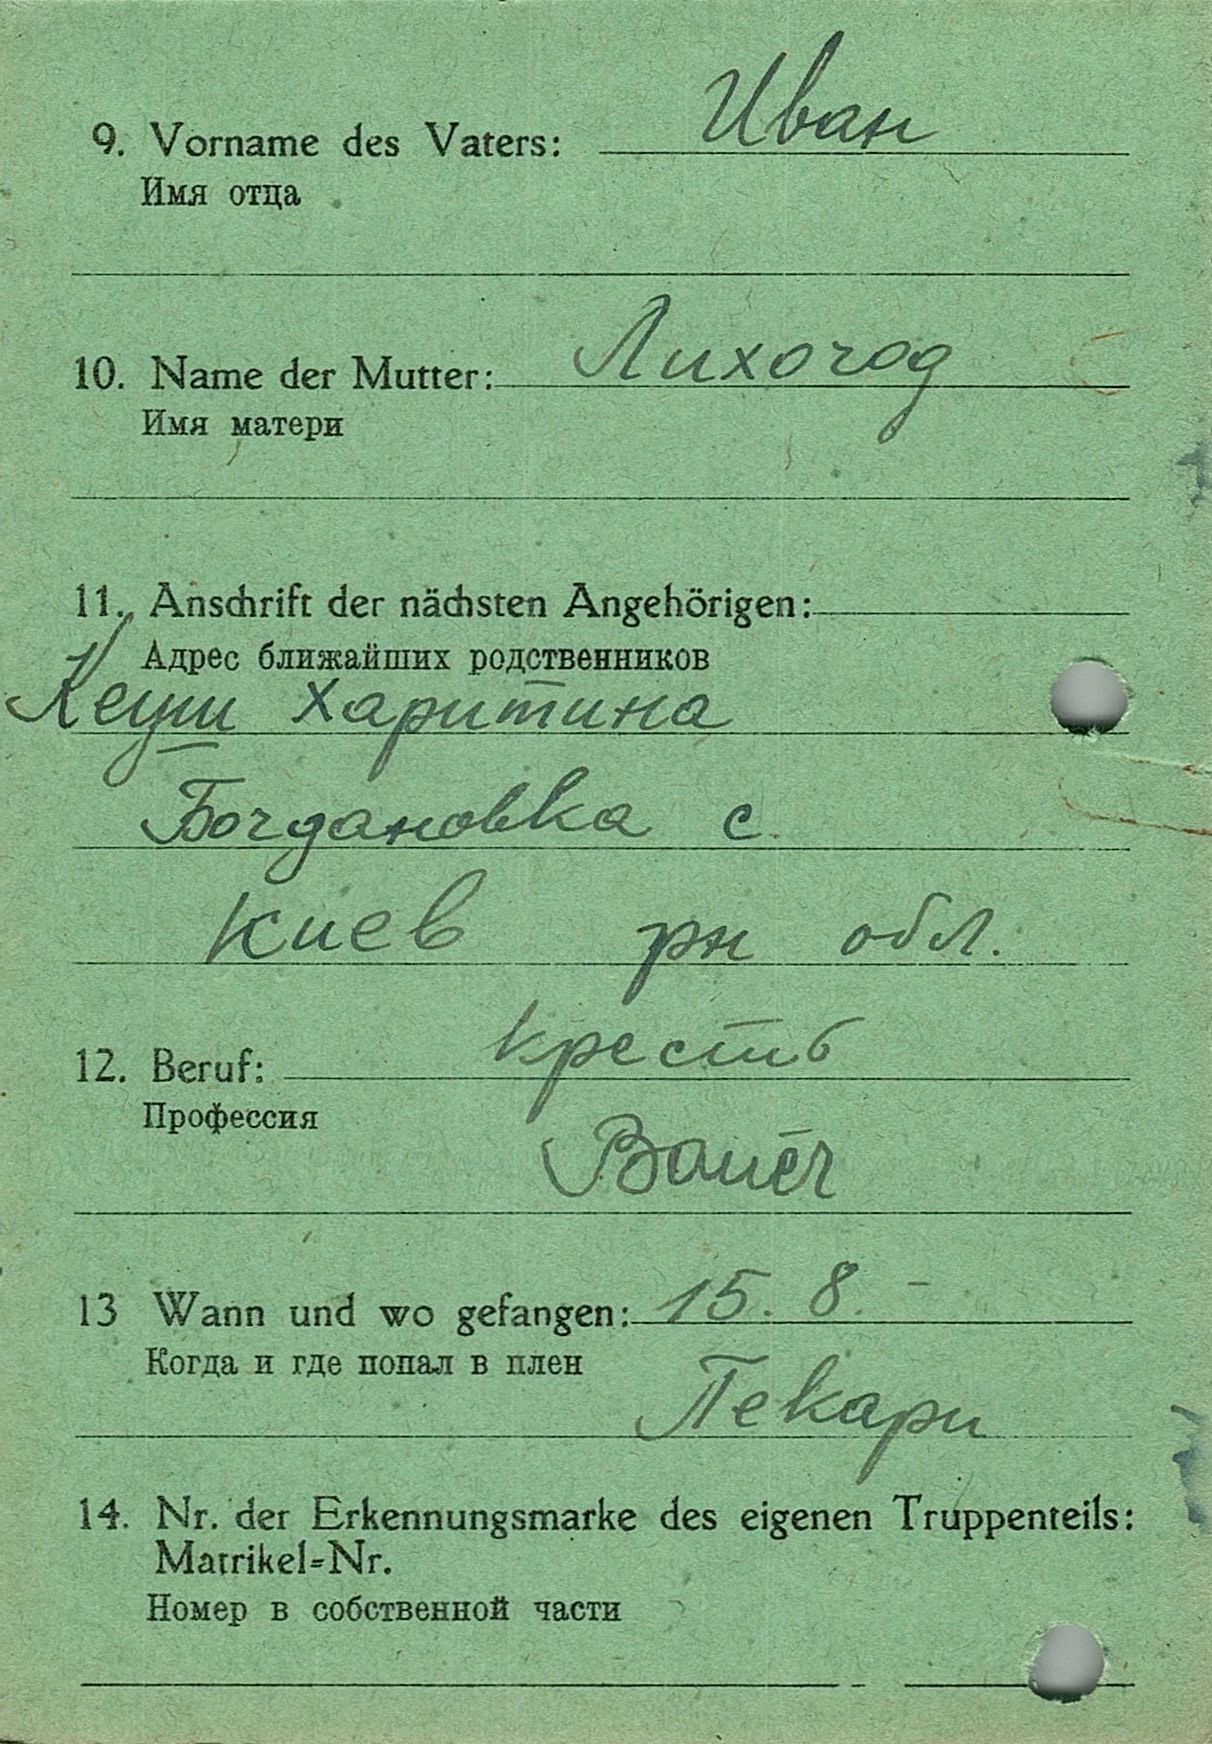 9. Vorname des Vaters: Иван
Имя отца
10. Name der Mutter: Лихогод
Имя матери
11. Anschrift der nächsten Angehörigen:
Адрес ближайших родственников
Харитина
Богдановка с.
Киев рн обл.
12. Beruf: крестЬ
Профессия
Bauer
13 Wann und wo gefangen: 15. 8. –
Когда и где попал в плен
Пекари
14. Nr. der Erkennungsmarke des eigenen Truppenteils:
Matrikel=Nr.
Номер в собственной части